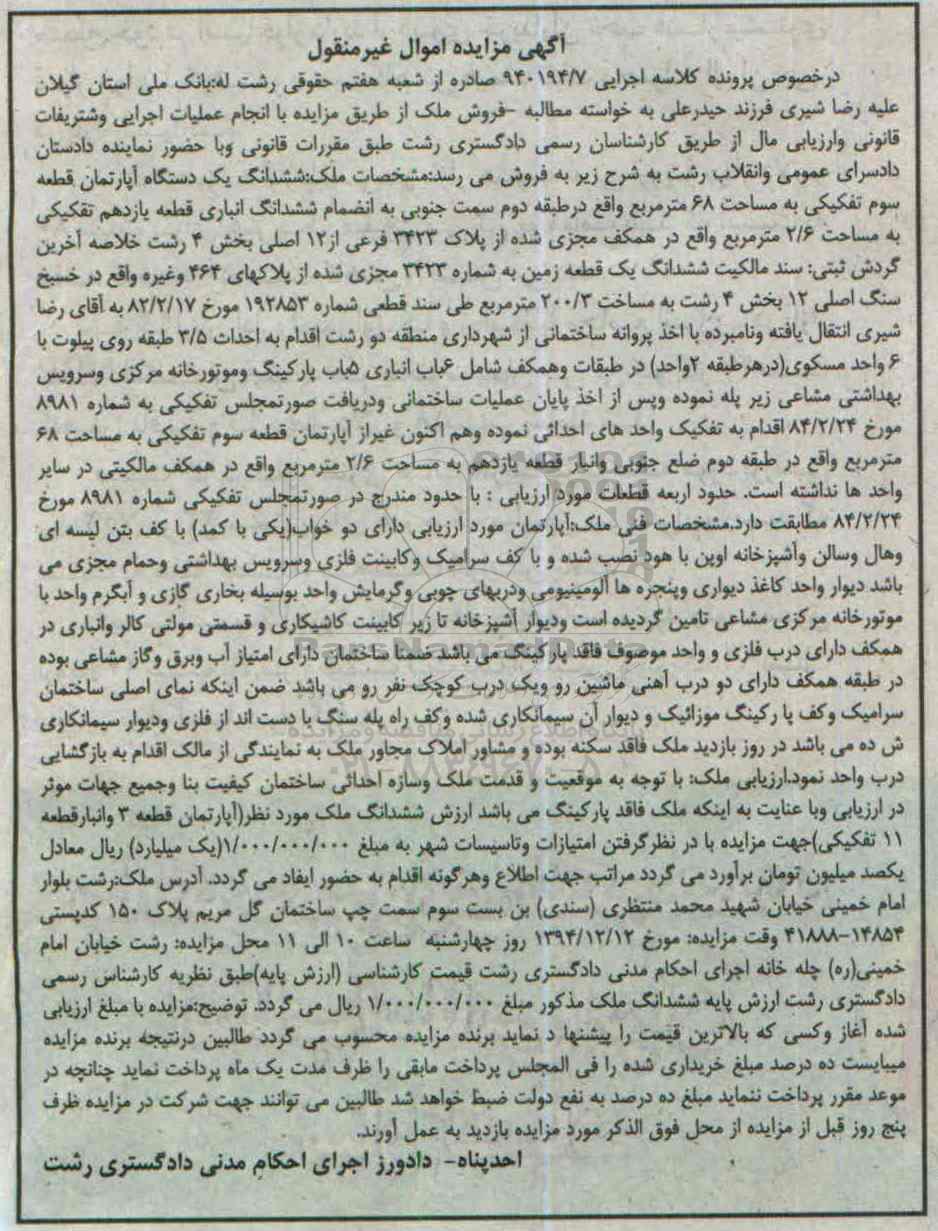 آگهی مزایده اموال غیرمنقول
درخصوص پرونده کلاسه اجرایی ۹۴۰۱۹۴/۷ صادره از شعبه هفتم حقوقی رشت له:بانک ملی استان گیلان
علیه رضا شیری فرزند حیدرعلی به خواسته مطالبه -فروش ملک از طریق مزایده با انجام عملیات اجرایی وشتریفات
قانونی وارزیابی مال از طریق کارشناسان رسمی دادگستری رشت طبق مقررات قانونی وبا حضور نماینده دادستان
دادسرای عمومی وانقلاب رشت به شرح زیر به فروش می رسد:مشخصات ملک:ششدانگ یک دستگاه آپارتمان قطعه
سوم تفکیکی به مساحت ۶۸ مترمربع واقع درطبقه دوم سمت جنوبی به انضمام ششدانگ انباری قطعه یازدهم تفکیکی
به مساحت ۲/۶ مترمربع واقع در همکف مجزی شده از پلاک ۳۴۲۳ فرعی از۱۲ اصلی بخش ۴ رشت خلاصه آخرین
گردش ثبتی: سند مالکیت ششدانگ یک قطعه زمین به شماره ۳۴۲۳ مجزی شده از پلاکهای ۴۶۴ وغیره واقع در خسبخ
سنگ اصلی ۱۲ بخش ۴ رشت به مساخت ۲۰۰/۳ مترمربع طی سند قطعی شماره ۱۹۲۸۵۳ مورخ ۸۲/۲/۱۷ به آقای رضا
شیری انتقال یافته ونامبرده با اخذ پروانه ساختمانی از شهرداری منطقه دو رشت اقدام به احداث ۳/۵ طبقه روی پیلوت با
۶ واحد مسکوی(درهرطبقه ۲واحد) در طبقات وهمکف شامل ۶باب انباری ۵باب پارکینگ وموتورخانه مرکزی وسرویس
بهداشتی مشاعی زیر پله نموده وپس از اخذ پایان عملیات ساختمانی ودریافت صورتمجلس تفکیکی به شماره ۸۹۸۱
مورخ ۸۴/۲/۲۴ اقدام به تفکیک واحد های احداثی نموده وهم اکنون غیراز آپارتمان قطعه سوم تفکیکی به مساحت ۶۸
مترمربع واقع در طبقه دوم ضلع جنوبی وانبار قطعه یازدهم به مساحت ۲/۶ مترمربع واقع در همکف مالکیتی در سایر
واحد ها نداشته است. حدود اربعه قطعات مورد ارزیابی : با حدود مندرج در صورتمجلس تفکیکی شماره ۸۹۸۱ مورخ
۸۴/۲/۲۴ مطابقت دارد.مشخصات فنی ملک:آپارتمان مورد ارزیابی دارای دو خواب(یکی با کمد) با کف بتن لیسه ای
وهال وسالن وآشپزخانه اوپن با هود نصب شده و با کف سرامیک وکابینت فلزی وسرویس بهداشتی وحمام مجزی می
باشد دیوار واحد کاغذ دیواری وپنجره ها آلومینیومی ودربهای چوبی وگرمایش واحد بوسیله بخاری گازی و آبگرم واحد با
موتورخانه مرکزی مشاعی تامین گردیده است ودیوار آشپزخانه تا زیر کابینت کاشیکاری و قسمتی مولتی کالر وانباری در
همکف دارای درب فلزی و واحد موصوف فاقد پارکینگ می باشد ضمنا ساختمان دارای امتیاز آب وبرق وگاز مشاعی بوده
در طبقه همکف دارای دو درب آهنی ماشین رو ویک درب کوچک نفر رو می باشد ضمن اینکه نمای اصلی ساختمان
سرامیک وکف پا رکینگ موزائیک و دیوار آن سیمانکاری شده وکف راه پله سنگ با دست اند از فلزی ودیوار سیمانکاری
ش ده می باشد در روز بازدید ملک فاقد سکنه بوده و مشاور املاک مجاور ملک به نمایندگی از مالک اقدام به بازگشایی
درب واحد نمود.ارزیابی ملک: با توجه به موقعیت و قدمت ملک وسازه احداثی ساختمان کیفیت بنا وجمیع جهات موثر
در ارزیابی وبا عنایت به اینکه ملک فاقد پارکینگ می باشد ارزش ششدانگ ملک مورد نظر(آپارتمان قطعه ۳ وانبارقطعه
۱۱ تفکیکی)جهت مزایده با در نظرگرفتن امتیازات وتاسیسات شهر به مبلغ ۱/۰۰۰/۰۰۰/۰۰۰(یک میلیارد) ریال معادل
یکصد میلیون تومان برآورد می گردد مراتب جهت اطلاع وهرگونه اقدام به حضور ایفاد می گردد. آدرس ملک:رشت بلوار
امام خمینی خیابان شهید محمد منتظری (سندی) بن بست سوم سمت چپ ساختمان گل مریم پلاک ۱۵۰ کدپستی
۴۱۸۸۸-۱۴۸۵۴ وقت مزایده: مورخ ۱۳۹۴/۱۲/۱۲ روز چهارشنبه ساعت ۱۰ الی ۱۱ محل مزایده: رشت خیابان امام
خمینی(ره) چله خانه اجرای احکام مدنی دادگستری رشت قیمت کارشناسی (ارزش پایه)طبق نظریه کارشناس رسمی
دادگستری رشت ارزش پایه ششدانگ ملک مذکور مبلغ ۱/۰۰۰/۰۰۰/۰۰۰ ریال می گردد. توضیح:مزایده با مبلغ ارزیابی
شده آغاز وکسی که بالاترین قیمت را پیشنها د نماید برنده مزایده محسوب می گردد طالبین درنتیجه برنده مزایده
میبایست ده درصد مبلغ خریداری شده را فی المجلس پرداخت مابقی را ظرف مدت یک ماه پرداخت نماید چنانچه در
موعد مقرر پرداخت ننماید مبلغ ده درصد به نفع دولت ضبط خواهد شد طالبین می توانند جهت شرکت در مزایده ظرف
پنج روز قبل از مزایده از محل فوق الذکر مورد مزایده بازدید به عمل آورند.
احدپناه- دادورز اجرای احکام مدنی دادگستری رشت